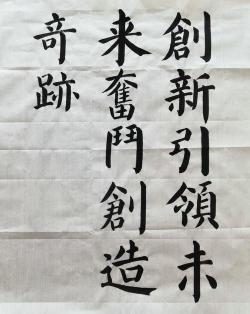 創新引領未
来奮鬥創造
奇跡